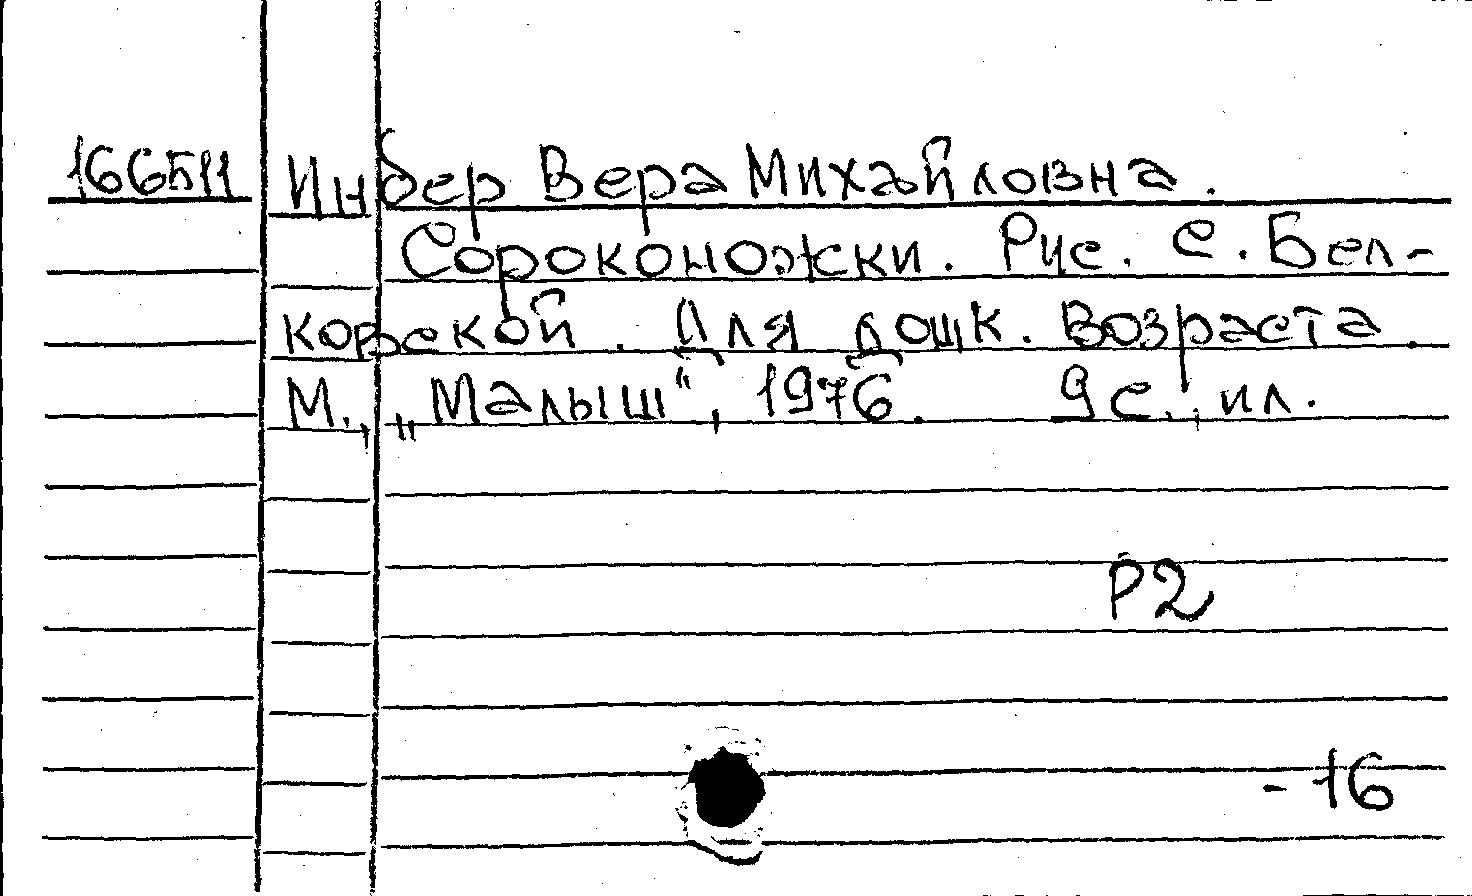 166511 Инбер Вера Михайловна.
Сороконожки. Рис. С. Бел-
ковской. Для дошк. возраста.
М., „Малыш“, 1976. 9 с., ил.
Р2
-16